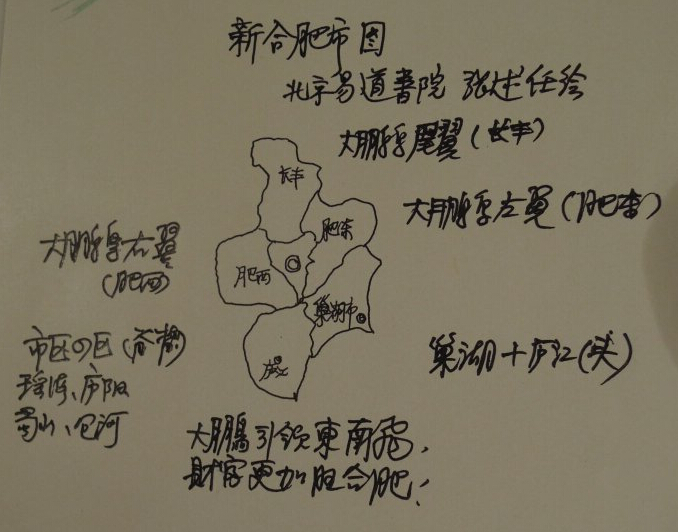 新合肥市图
北京易道書院 张述任绘
大鹏鸟尾翼(长丰)
长丰
大鹏鸟左翼(肥东)
肥东
大鹏鸟右翼
(肥西)
肥西
巢湖市
市区四区
瑶海、庐阳
蜀山、包河
巢湖+庐江(头)
庐江
大鵬引领東南飛,
財官更加旺合肥!